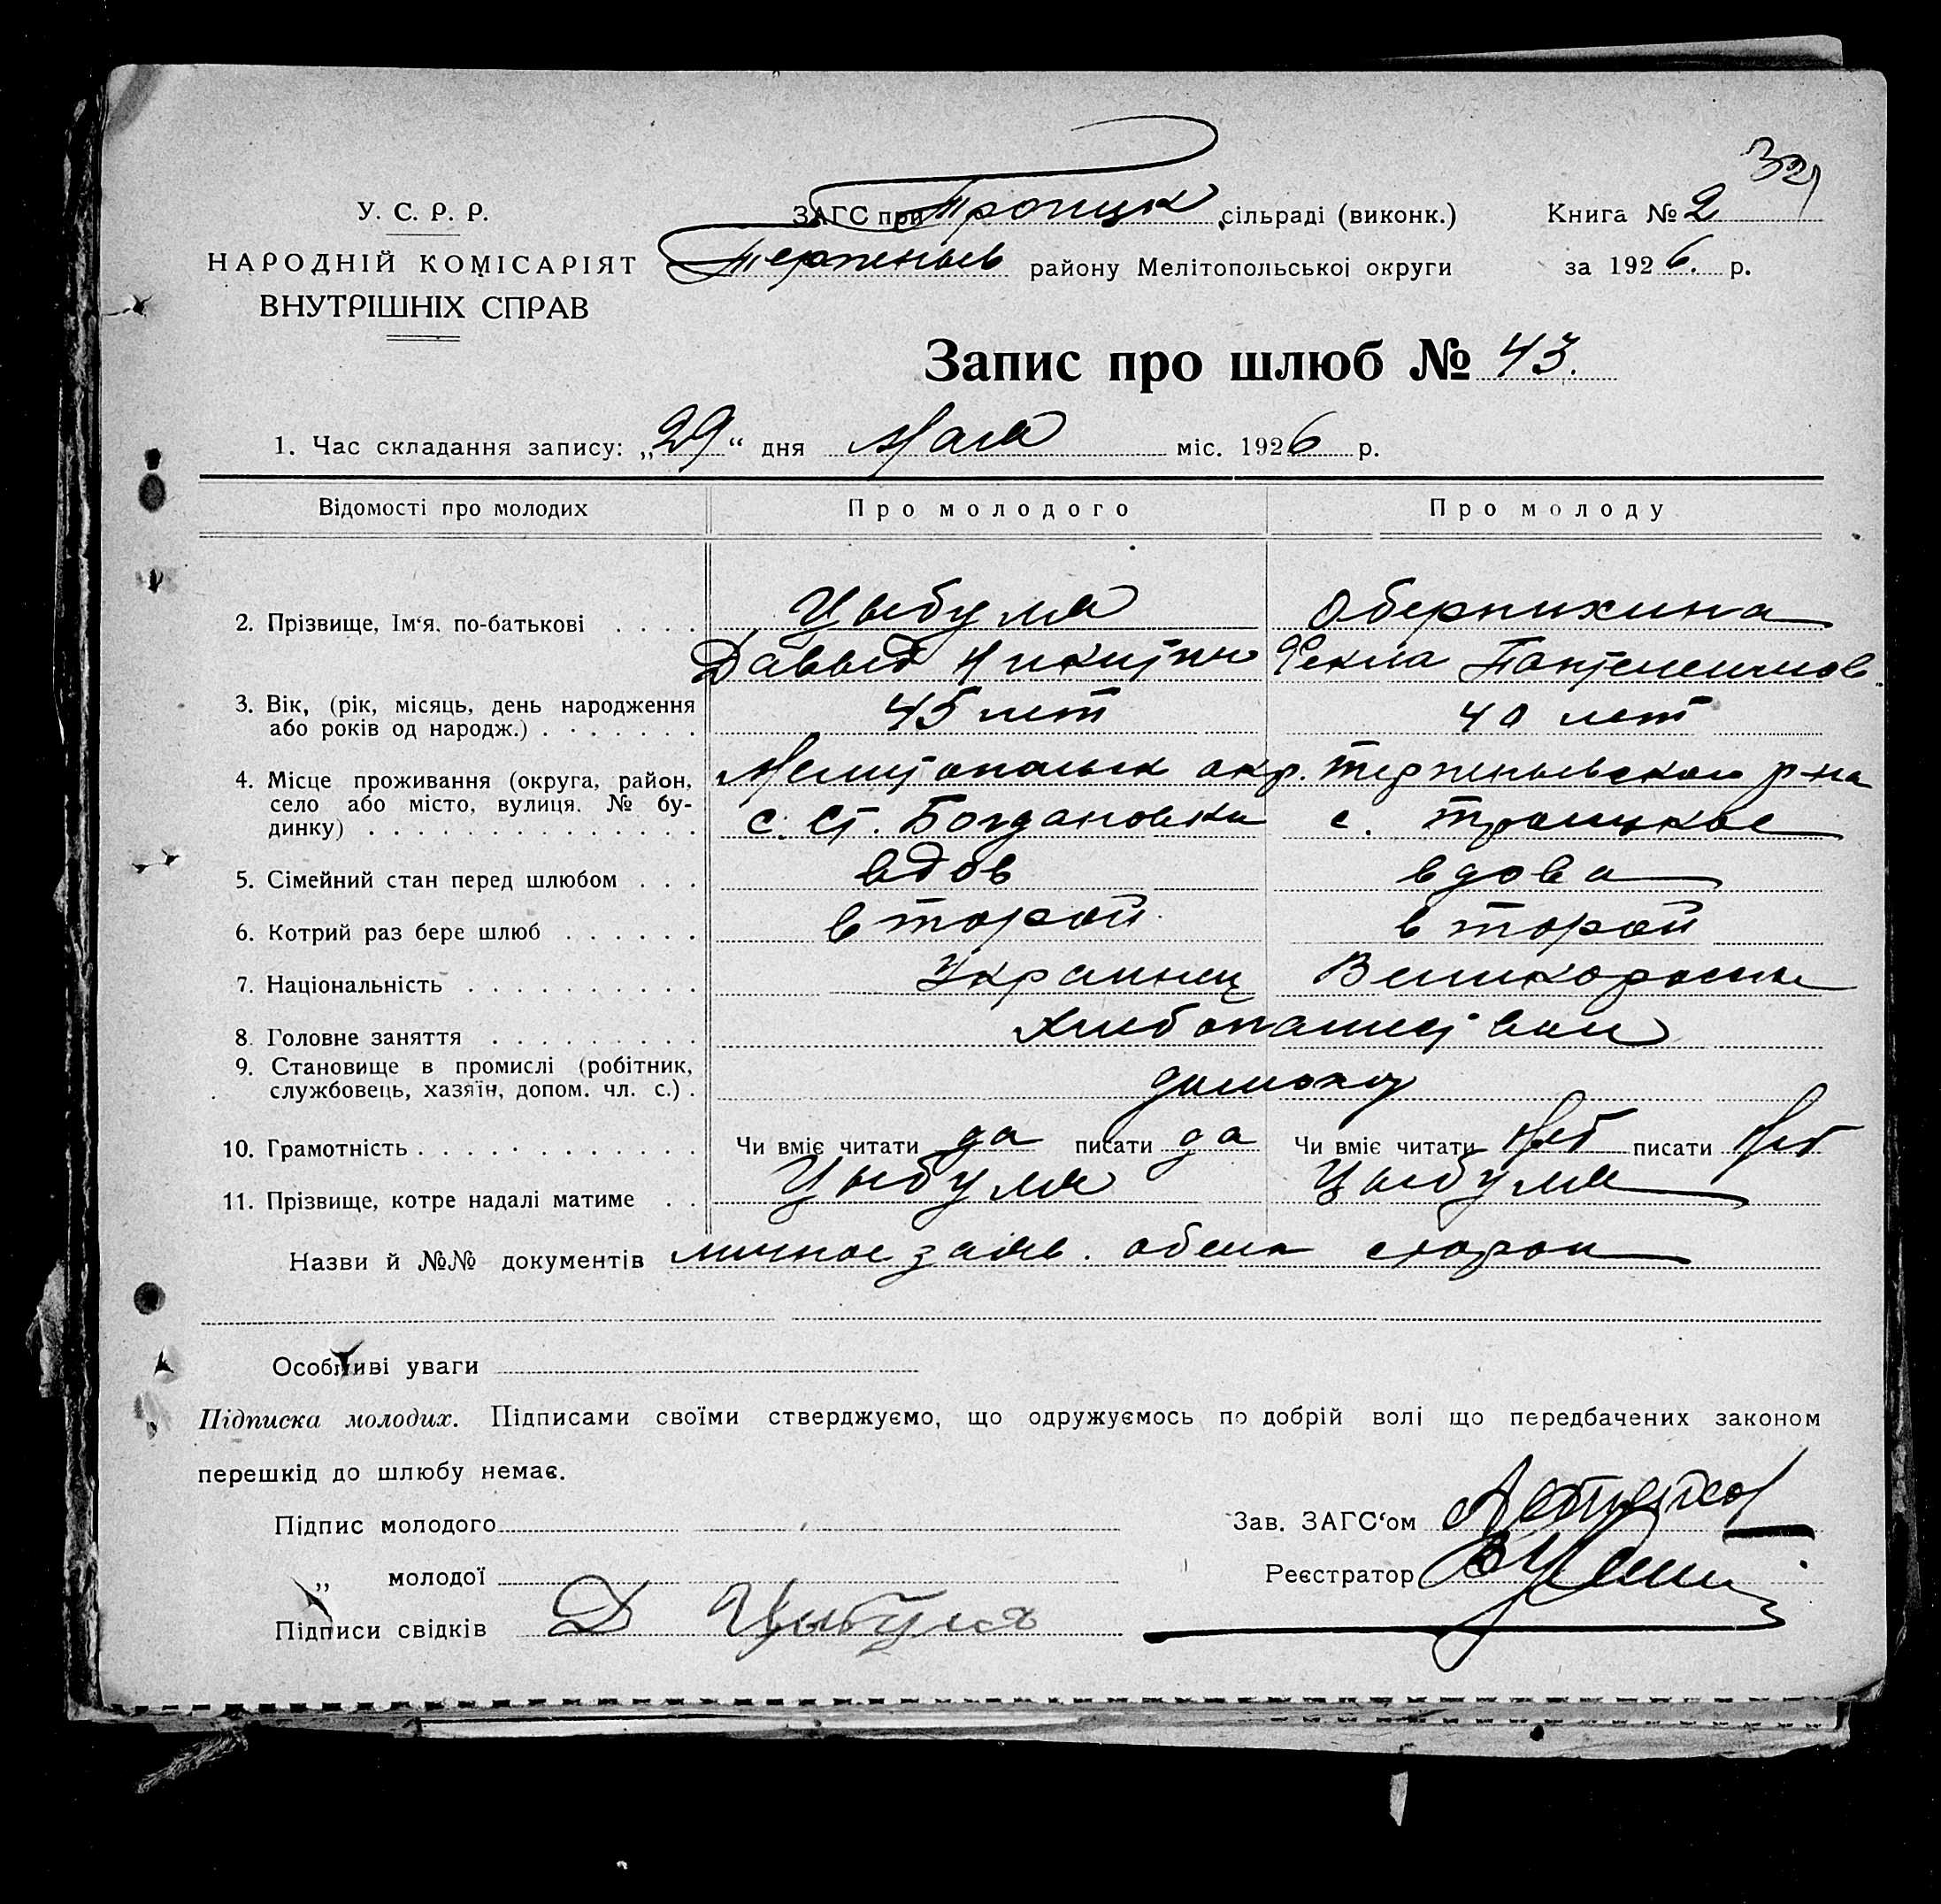 32
У. С. Р. Р.
НАРОДНІЙ КОМІСАРІЯТ
ВНУТРІШНІХ СПРАВ
ЗАГС при Троицк сільраді (виконк.)
Терпеньев району Мелітопольскої округи
Книга № 2
за 1926. р.
Запис про шлюб № 43.
1. Час складання запису: „29“ дня Мая міс. 1926 р.
Відомості про молодих Про молодого Про молоду
2. Прізвище, Ім‘я, по-батькові . . . . Цыбуля Оберникина
Давыд Никитин Фекла Пантелеимов.
3. Вік, (рік, місяць, день народження
або років од народж.) . . . . . . . 45 лет 40 лет
4. Місце проживання (округа, район, Мелитопольск окр. Терпеньевского р-на
село або місто, вулиця. № бу-
динку) . . . . . . . . . . . . . . с. Ст. Богдановки с. Троицкое
5. Сімейний стан перед шлюбом . . . вдов вдова
6. Котрий раз бере шлюб . . . . . . второй второй
7. Національність . . . . . . . . . . Украинец Великороська
8. Головне заняття . . . . . . . . . хлебопашество
9. Становище в промислі (робітник,
службовець, хазяїн, допом. чл. с.) .
10. Грамотність . . . . . . . . . . . . . Чи вміє читати да писати да Чи вміє читати нет писати нет
11. Прізвище, котре надалі матиме . . Цыбуля Цыбуля
Назви й №№ документів личное заяв. обеих сторон
Особливі уваги
Підписка молодих. Підписами своїми стверджуємо, що одружуємось по добрій волі що передбачених законом
перешкід до шлюбу немає.
Підпис молодого
Зав. ЗАГС‘ом
„ молодої
Реєстратор
Підписи свідків Д Цыбуля